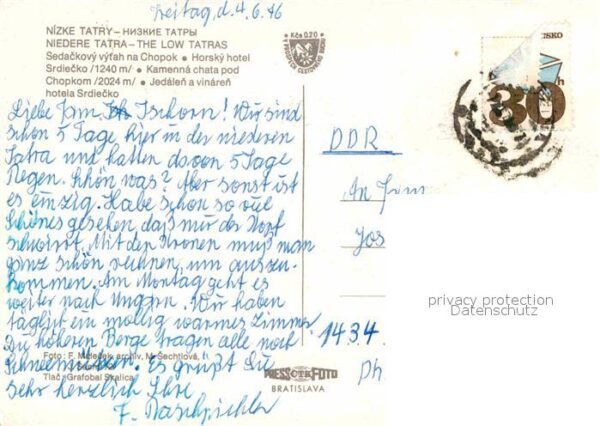 Freitag, d. 4.6.76
NÍZKE TATRY – НИЗКИЕ ТАТРЫ
NIEDERE TATRA – THE LOW TATRAS
Sedačkový výťah na Chopok • Horský hotel
Srdiečko /1240 m/ • Kamenná chata pod
Chopkom /2024 m/ • Jedáleň a vináreň
hotela Srdiečko
Kčs 0,20
30 h
Liebe Fam. Tschorn! Wir sind
schon 5 Tage hier in der niederen
Tatra und hatten davon 5 Tage
Regen. Schön was? Aber sonst ist
es einzig. Habe schon so viel
Schönes gesehen, daß mir der Kopf
schwirrt. Mit den Kronen muß man
ganz schön rechnen, um auszu-
kommen. Am Montag geht es
weiter nach Ungarn. Wir haben
täglich ein mollig warmes Zimmer.
Die höheren Berge tragen alle noch
Schneemützen. Es grüßt Sie
sehr herzlich Ihre
DDR
An Fam
Jos
1434
Ph
Foto: F. archiv, M. Šechtlová,
Tlač: Grafobal Skalica
PRESSFOTO
BRATISLAVA
privacy protection
Datenschutz